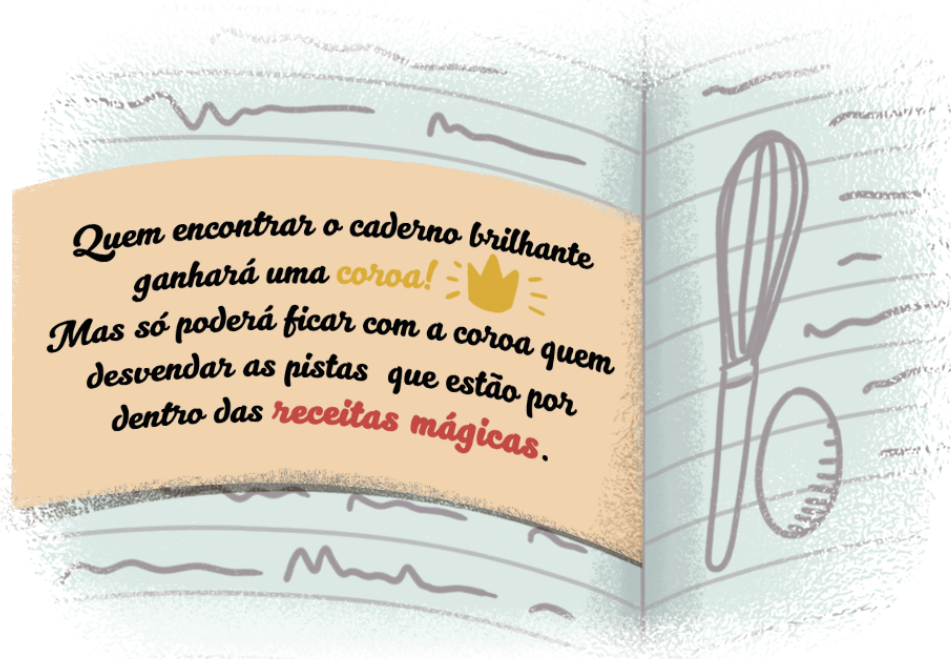 Quem encontrar o caderno brilhante
ganhará uma coroa!
Mas só poderá ficar com a coroa quem
desvendar as pistas que estão por
dentro das receitas mágicas.